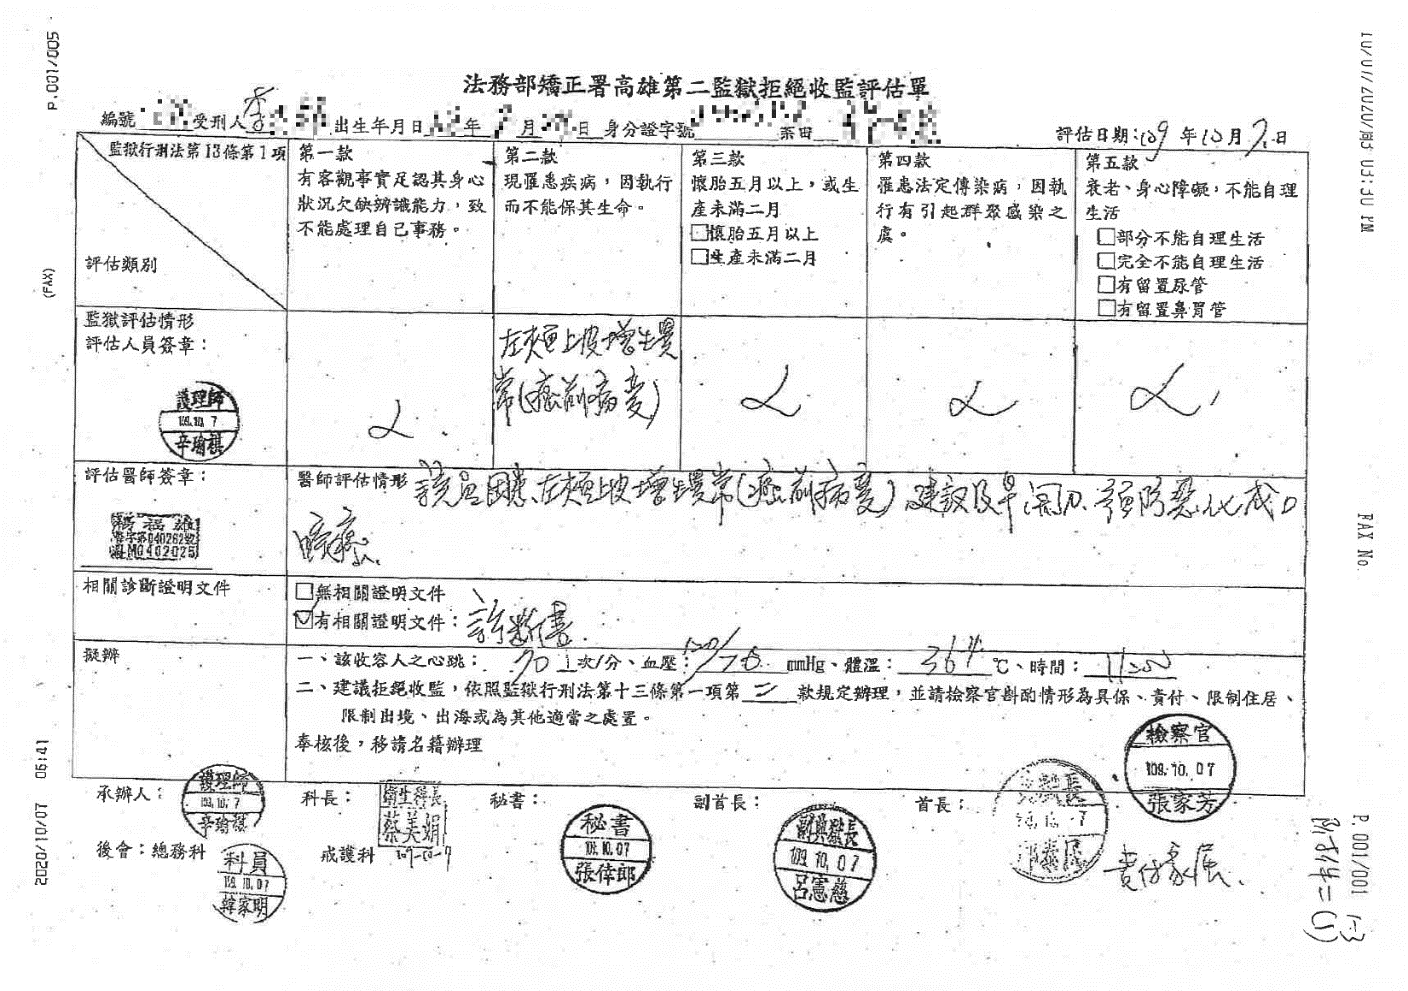 P.001/005
法務部矯正署高雄第二監獄拒絕收監評估單
編號 受刑人 李 出生年月日 年 月 日 身分證字號 評估日期:109年10月7日
監獄行刑法第13條第1項
評估類別
第一款
有客觀事實足認其身心
狀況欠缺辨識能力,致
不能處理自己事務。
第二款
現罹患疾病,因執行
而不能保其生命。
第三款
懷胎五月以上,或生
產未滿二月
□懷胎五月以上
□生產未滿二月
第四款
罹患法定傳染病,因執
行有引起群聚感染之
虞。
第五款
衰老、身心障礙,不能自理
生活
□部分不能自理生活
□完全不能自理生活
□有留置尿管
□有留置鼻胃管
監獄評估情形
評估人員簽章:
護理師
109.10.7
辛瑜棋
左頰上皮增生異
常(癌前病變)
評估醫師簽章:
楊福雄
醫師評估情形 該員因患左頰上皮增生異常(癌前病變)建議及早開刀、預防惡化成口
腔癌。
相關診斷證明文件
□無相關證明文件
☑有相關證明文件:診斷書
擬辦
一、該收容人之心跳: 70 次/分、血壓: 120/76 mmHg、體溫: 36.4 ℃、時間:
二、建議拒絕收監,依照監獄行刑法第十三條第一項第二款規定辦理,並請檢察官斟酌情形為具保、責付、限制住居、
限制出境、出海或為其他適當之處置。
奉核後,移請名籍辦理
檢察官
109.10.07
張家芳
承辦人:
護理師
109.10.7
辛瑜棋
科長:
衛生科長
蔡美娟
109-10-7
秘書:
秘書
109.10.07
張倖郎
副首長:
副典獄長
109.10.07
呂憲慈
首長:
典獄長
責付家屬
後會:總務科
科員
109.10.07
韓家明
戒護科
(FAX)
2020/10/07 05:41
FAX No.
P. 001/001